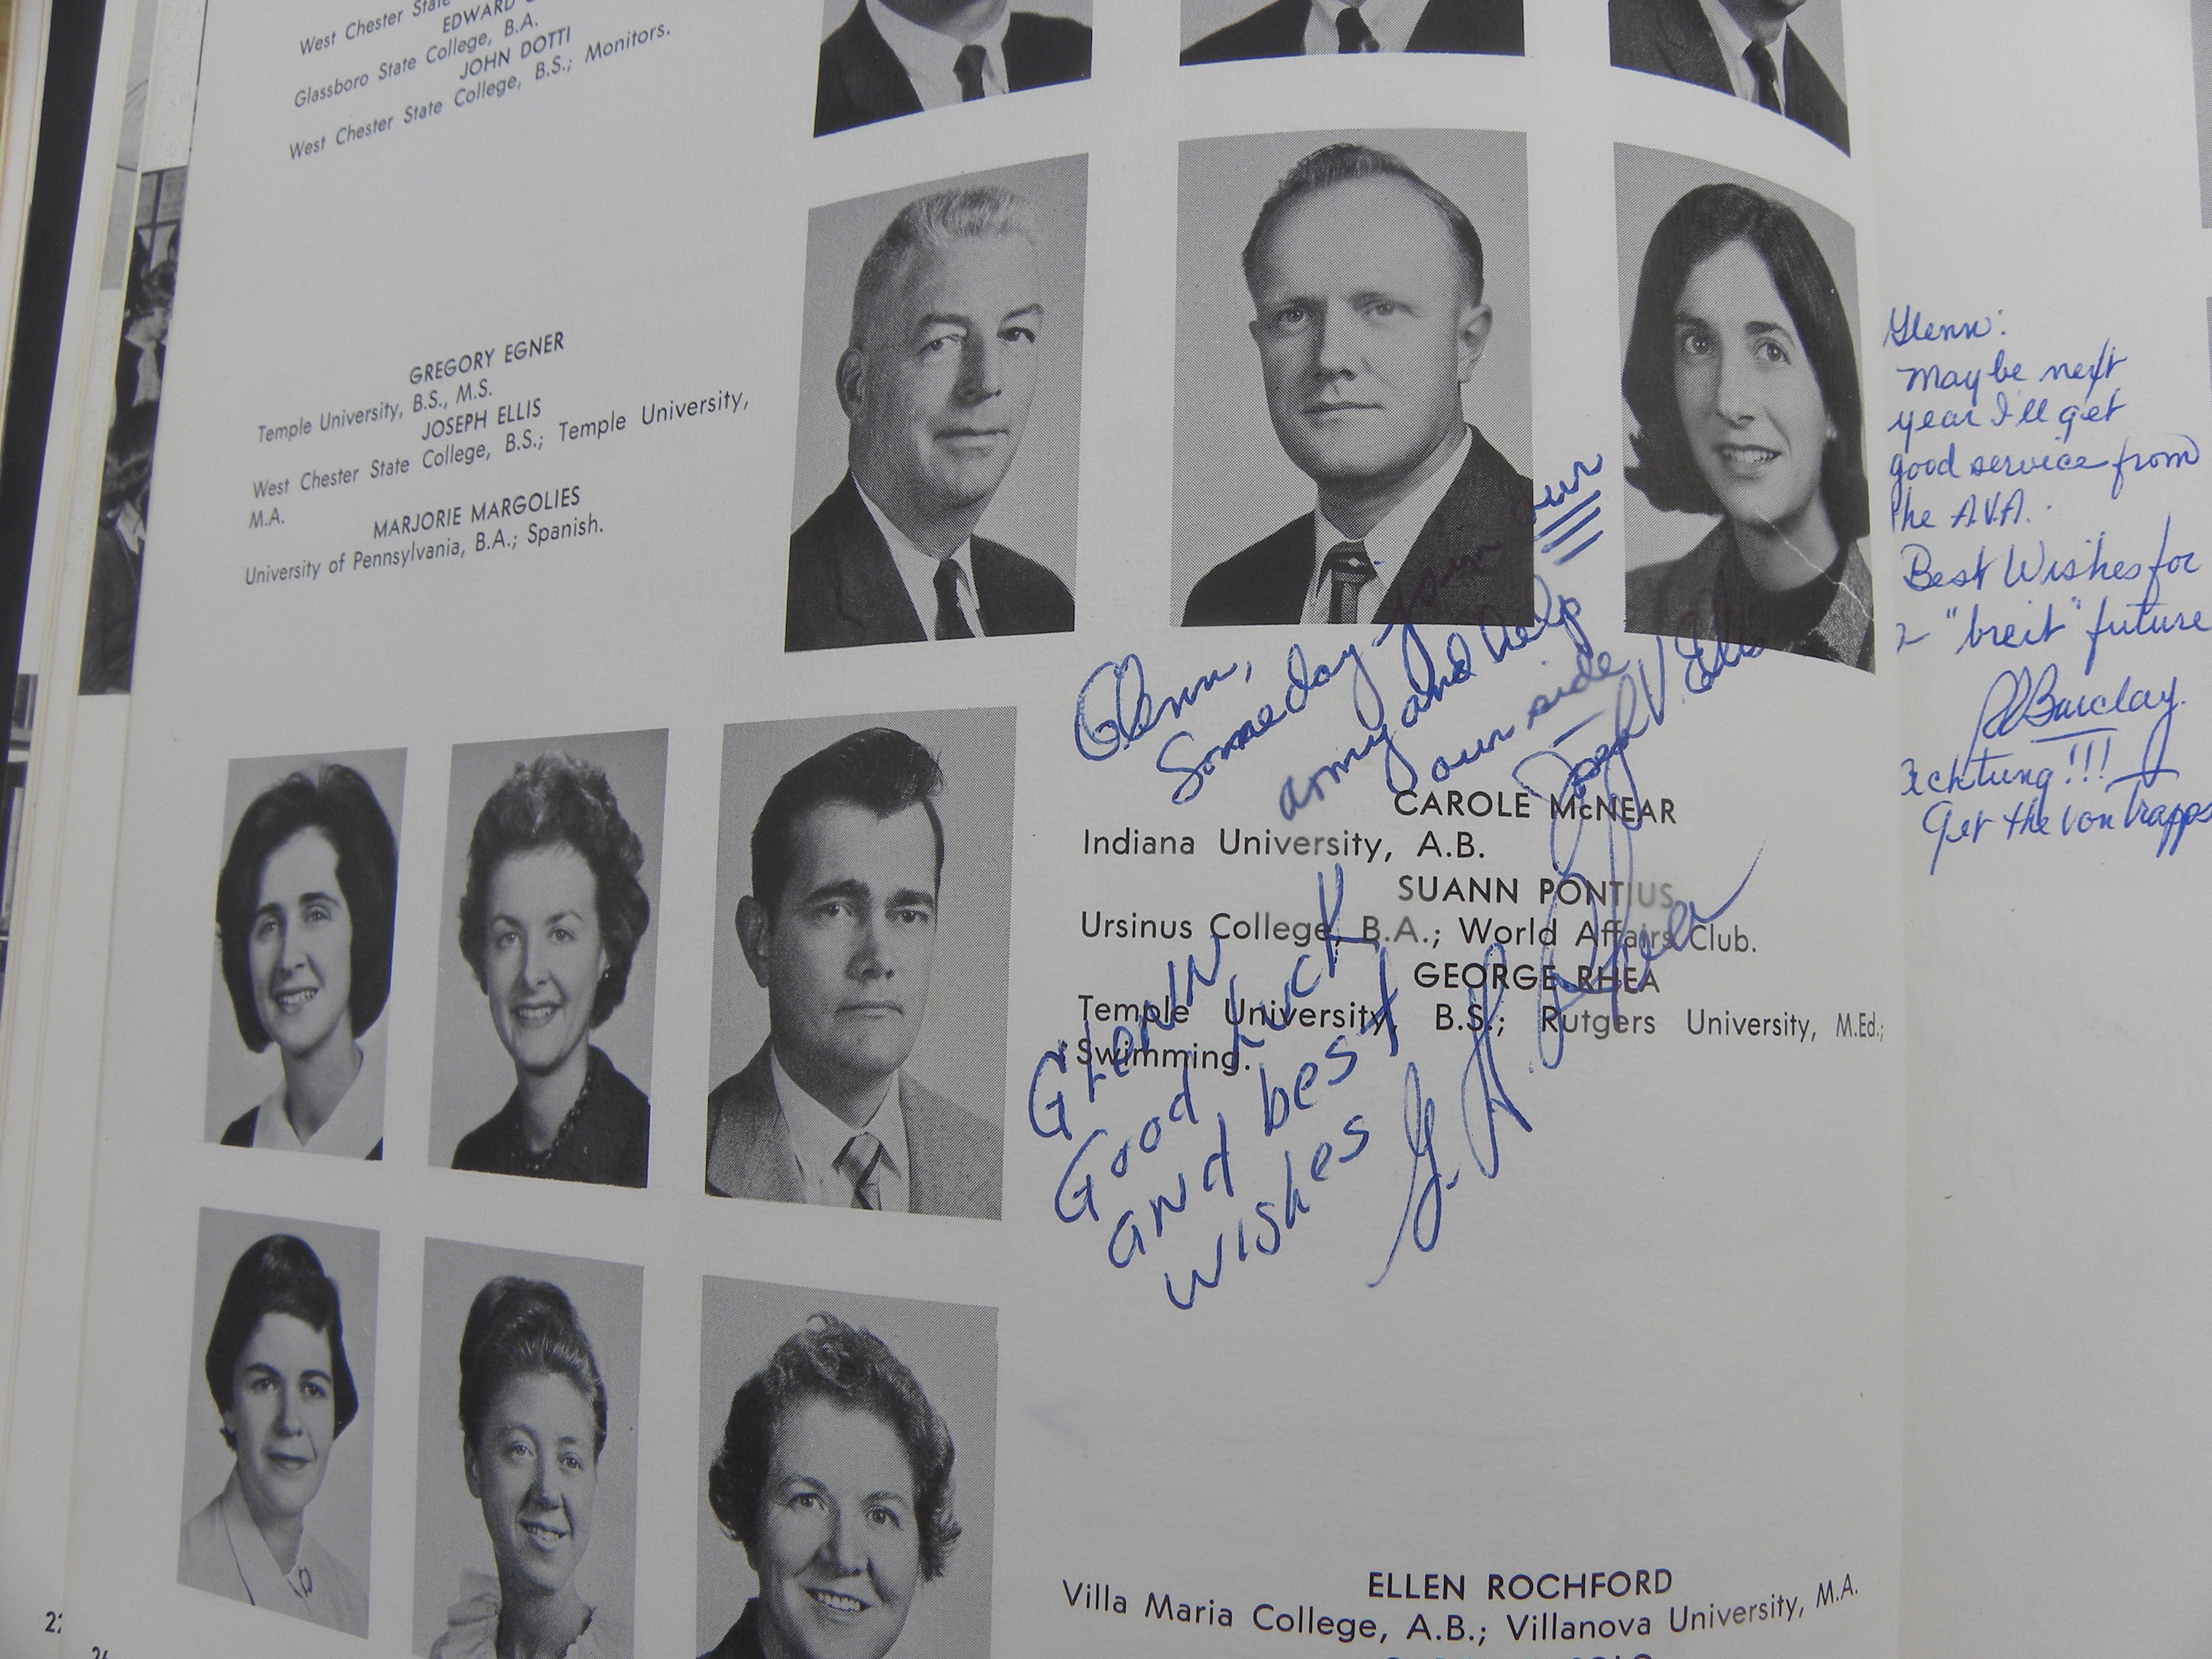 West Chester State
EDWARD
Glassboro State College, B.A.
JOHN DOTTI
West Chester State College, B.S.; Monitors.
GREGORY EGNER
Temple University, B.S., M.S.
JOSEPH ELLIS
West Chester State College, B.S.; Temple University,
M.A.
MARJORIE MARGOLIES
University of Pennsylvania, B.A.; Spanish.
Glenn,
Someday join our
army and help
our side
Joseph V. Ellis
CAROLE McNEAR
Indiana University, A.B.
SUANN PONTIUS
Ursinus College, B.A.; World Affairs Club.
GEORGE RHEA
Temple University, B.S.; Rutgers University, M.Ed.;
Swimming.
GLENN
Good Luck
and best
wishes
G. A. Rhea
ELLEN ROCHFORD
Villa Maria College, A.B.; Villanova University, M.A.
Glenn:
Maybe next
year I'll get
good service from
the A.V.A.
Best Wishes for
a "breit" future
Barclay
Achtung!!!
Get the von Trapps
22
24